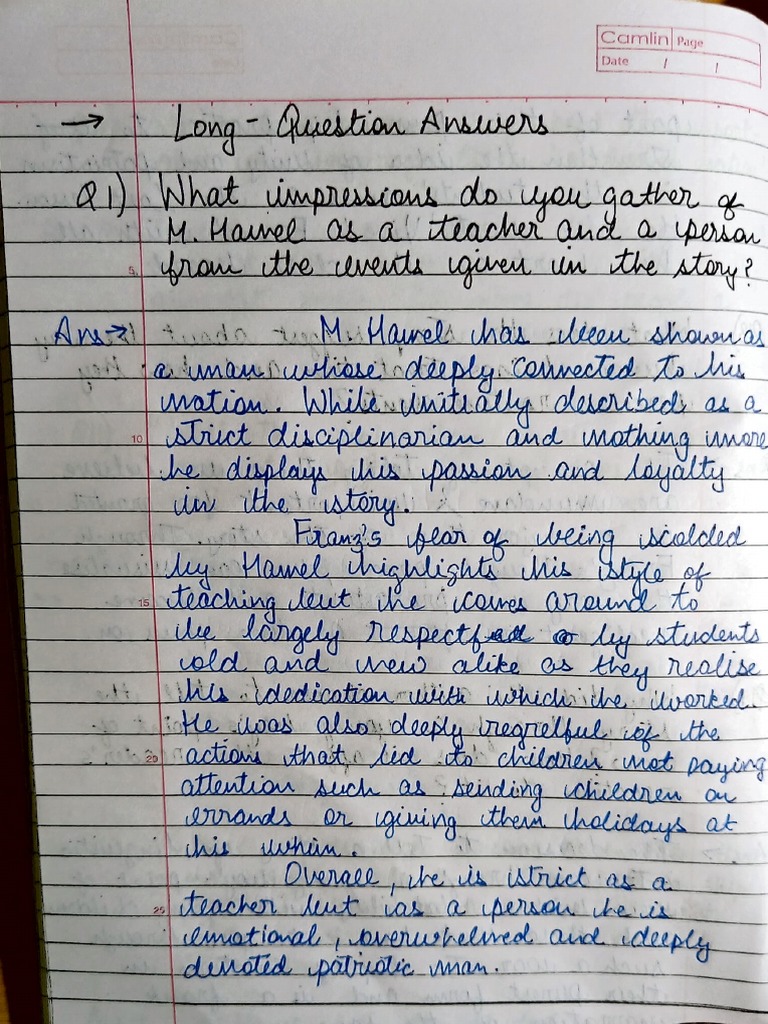 Camlin Page
Date / /
→ Long - Question Answers
Q1) What impressions do you gather of
M. Hamel as a teacher and a person
5 from the events given in the story?
Ans → M. Hamel has been shown as
a man whose deeply connected to his
nation. While initially described as a
10 strict disciplinarian and nothing more
he displays his passion and loyalty
in the story.
Franz's fear of being scolded
by Hamel highlights his style of
15 teaching but he comes around to
be largely respected by students
old and new alike as they realise
his dedication with which he worked.
He was also deeply regretful of the
20 actions that led to children not paying
attention such as sending children on
errands or giving them holidays at
his whim.
Overall, he is strict as a
25 teacher but as a person he is
emotional, overwhelmed and deeply
devoted patriotic man.